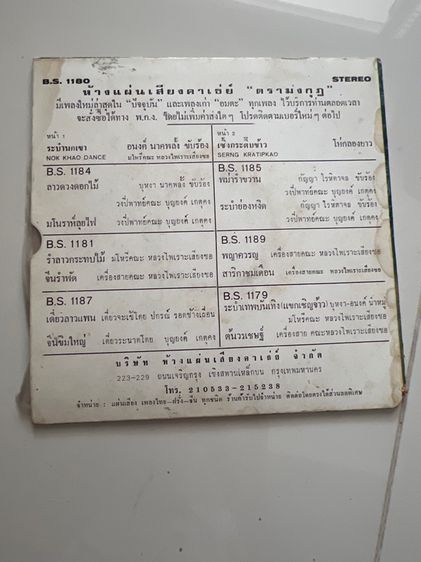 B.S. 1180 STEREO
ห้างแผ่นเสียงคาเธ่ย์ "ตรามงกุฎ"
มีเพลงใหม่ล่าสุดใน "ปัจจุบัน" และเพลงเก่า "อมตะ" ทุกเพลง ไว้บริการท่านตลอดเวลา
จะสั่งซื้อได้ทาง พ.ก.ง. โดยไม่เพิ่มค่าส่งใด ๆ โปรดติดตามเบอร์ใหม่ๆ ต่อไป
หน้า 1
ระบำนกเขา อนงค์ นาคพลั้ง ขับร้อง
NOK KHAO DANCE มโหรีคณะ หลวงไพเราะเสียงซอ
หน้า 2
เซิ้งกระติ๊บข้าว โห่กลองยาว
SERNG KRATIPKAO
B.S. 1184
ลาวดวงดอกไม้ บุหงา นาคพลั้ง ขับร้อง
วงปี่พาทย์คณะ บุญยงค์ เกตุคง
มโนราห์ลุยไฟ วงปี่พาทย์คณะ บุญยงค์ เกตุคง
B.S. 1185
พม่ารำขวาน กัญญา โรหิตาจล ขับร้อง
วงปี่พาทย์คณะ บุญยงค์ เกตุคง
ระบำย่องหงิด วงปี่พาทย์คณะ บุญยงค์ เกตุคง
B.S. 1181
รำลาวกระทบไม้ มโหรีคณะ หลวงไพเราะเสียงซอ
จีนรำพัด เครื่องสายคณะ หลวงไพเราะเสียงซอ
B.S. 1189
พญาครวญ เครื่องสายคณะ หลวงไพเราะเสียงซอ
สาริกาชมเดือน เครื่องสายคณะ หลวงไพเราะเสียงซอ
B.S. 1187
เดี่ยวลาวแพน เดี่ยวจะเข้โดย ปกรณ์ รอดช้างเผื่อน
จีนขิมใหญ่ เดี่ยวระนาดโดย บุญยงค์ เกตุคง
B.S. 1179
ระบำเทพบันเทิง(แขกเชิญจ้าว) บุหงา-อนงค์
มโหรีคณะ หลวงไพเราะเสียงซอ
ต้นวรเชษฐ์ เครื่องสาย คณะหลวงไพเราะเสียงซอ
บริษัท ห้างแผ่นเสียงคาเธ่ย์ จำกัด
223-229 ถนนเจริญกรุง เชิงสพานเหล็กบน กรุงเทพมหานคร
โทร. 210533-215238
จำหน่าย : แผ่นเสียง เพลงไทย-ฝรั่ง-จีน ทุกชนิด ร้านค้ารับไปจำหน่าย ติดต่อโดยตรงได้ส่วนลดพิเศษ